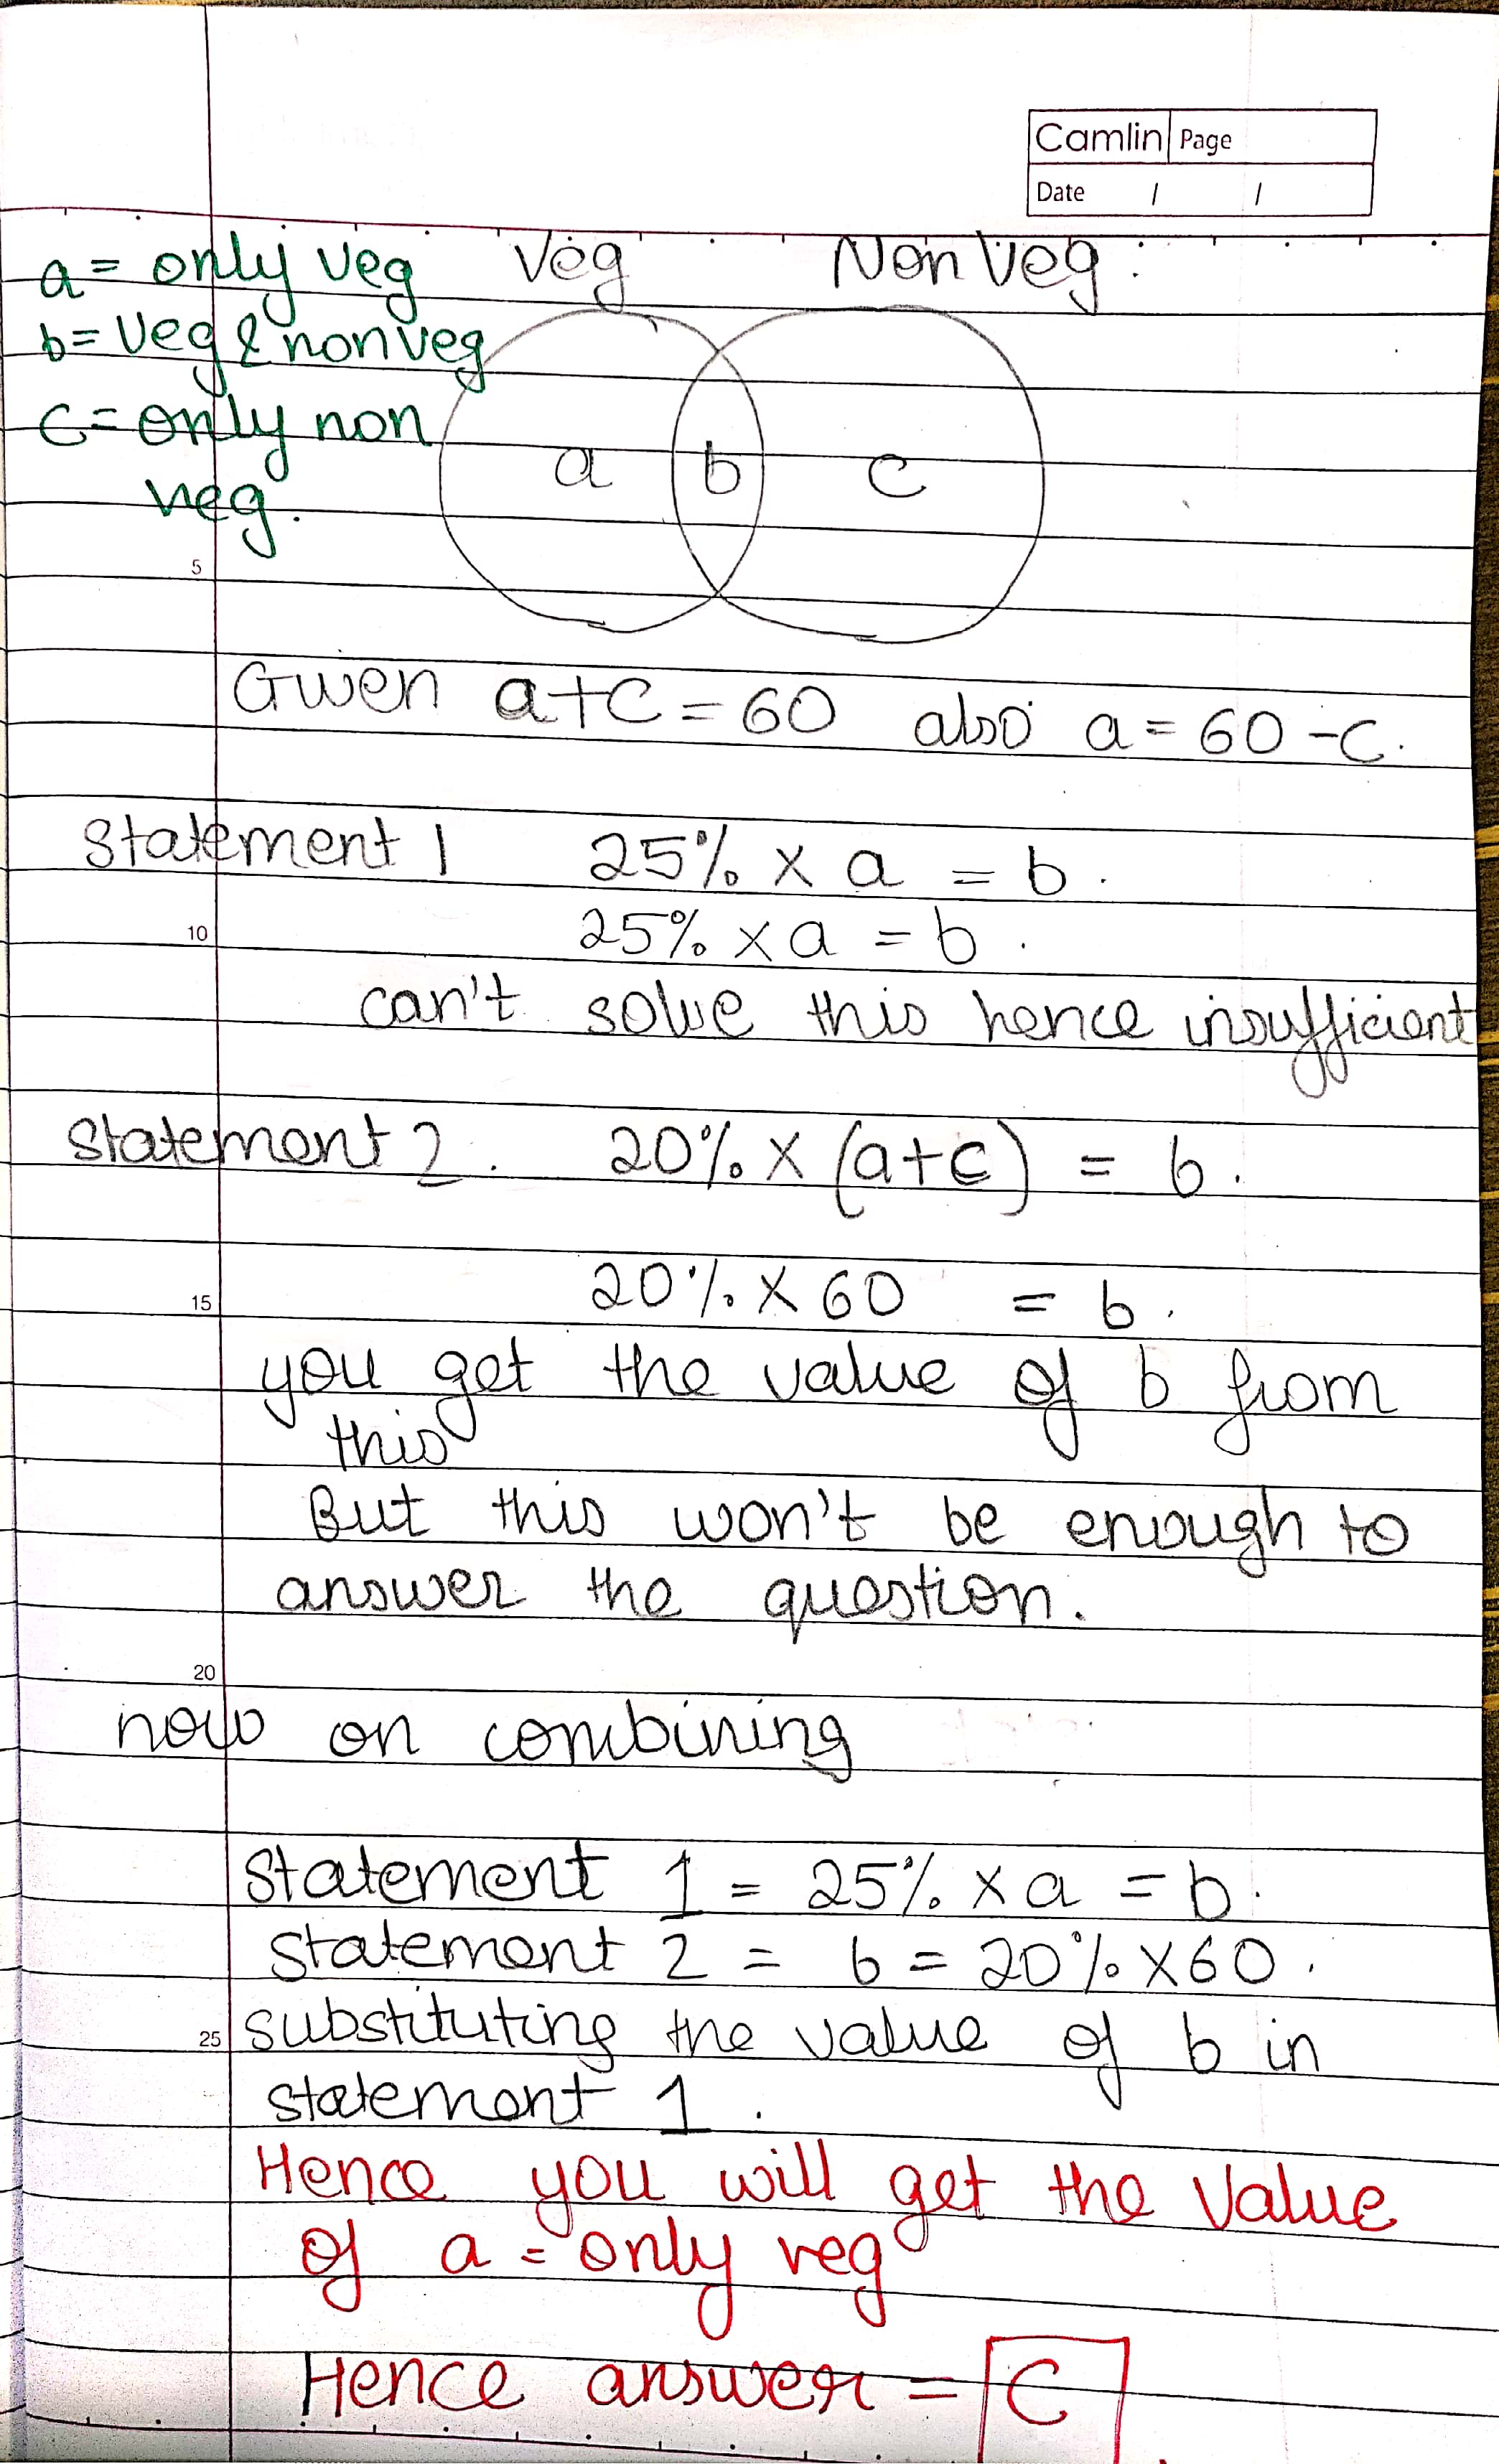 Camlin Page
Date / /
a = only veg
b = Veg & non veg
c = only non
veg.
Veg Non Veg
a b c
5
Given a+c = 60 also a = 60 - c.
Statement 1 25% x a = b.
10
25% x a = b.
can't solve this hence insufficient
Statement 2. 20% x (a+c) = b.
15
20% x 60 = b.
you get the value of b from
this
But this won't be enough to
answer the question.
20
now on combining
Statement 1 = 25% x a = b.
Statement 2 = b = 20% x 60.
25
substituting the value of b in
statement 1.
Hence you will get the value
of a = only veg
Hence answer = C